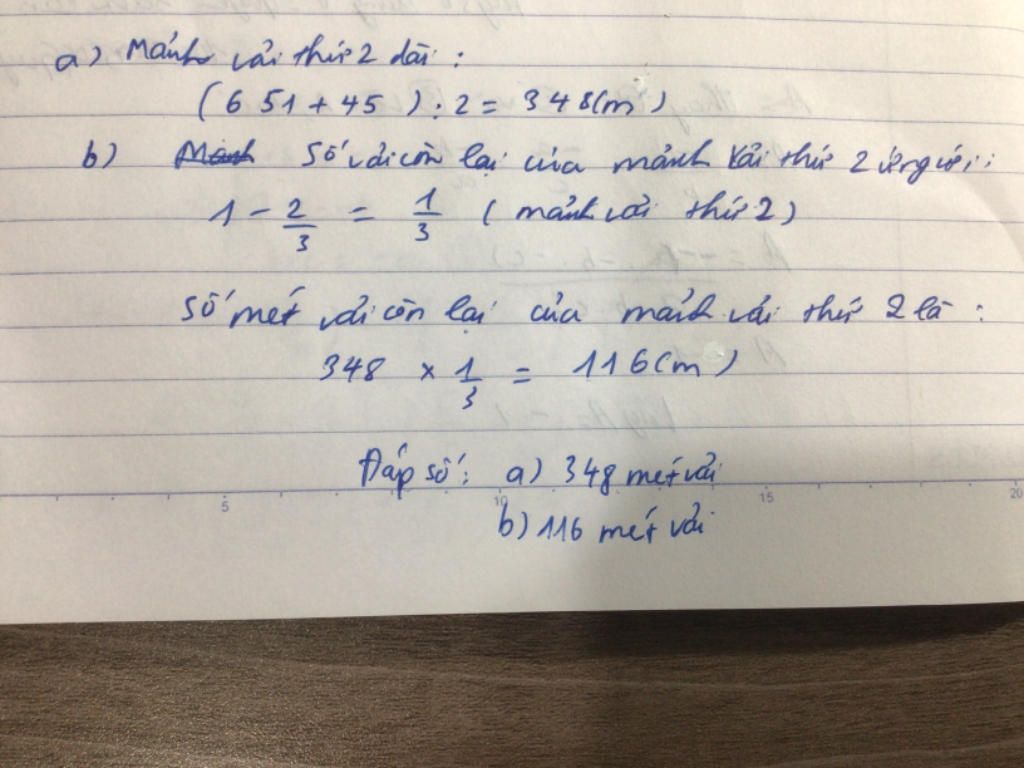 a) Mảnh vải thứ 2 dài :
(651 + 45) : 2 = 348 (m)
b) Số vải còn lại của mảnh vải thứ 2 ứng với :
1 - 2/3 = 1/3 (mảnh vải thứ 2)
Số mét vải còn lại của mảnh vải thứ 2 là :
348 × 1/3 = 116 (m)
Đáp số : a) 348 mét vải
b) 116 mét vải
5 10 15 20